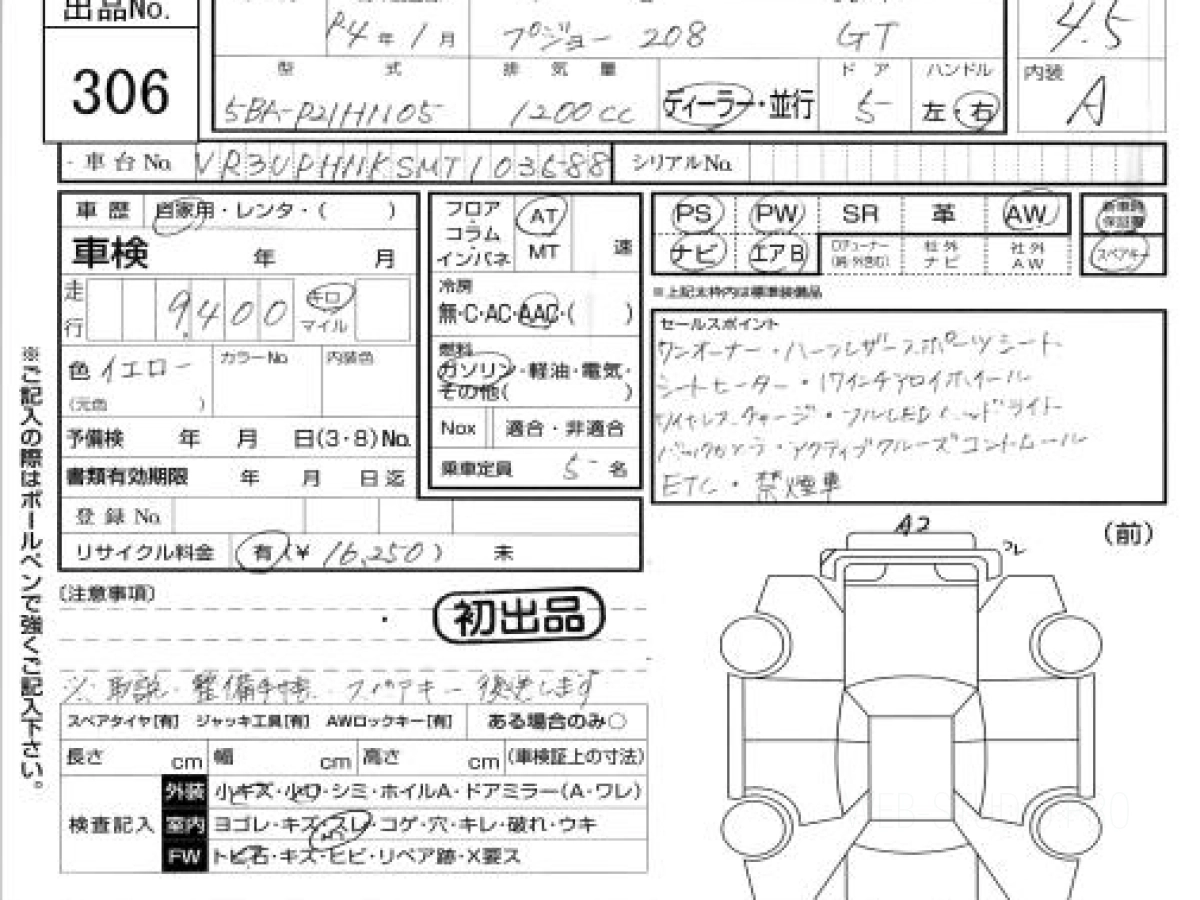 出品No.
306
R4年1月 プジョー 208 GT 4.5
型式 排気量 ドア ハンドル 内装
5BA-P21HN05 1200cc ディーラー・並行 5 左・右 A
車台No. VR3UPHNKSMT103688 シリアルNo.
車歴 自家用・レンタ・( )
車検 年 月
走行 9400 キロ マイル
色 イエロー カラーNo. 内装色
(元色 )
予備検 年 月 日(3・8)No.
書類有効期限 年 月 日迄
登録No.
リサイクル料金 有(¥16,250) 未
フロア・コラム・インパネ AT MT 速
冷房
無・C・AC・AAC・( )
燃料
ガソリン・軽油・電気・
その他( )
Nox 適合・非適合
乗車定員 5名
PS PW SR 革 AW 新車時保証書
ナビ エアB 社外ナビ 社外AW スペアキー
※上記太枠内は標準装備品
セールスポイント
ワンオーナー・ハーフレザースポーツシート
シートヒーター・17インチアロイホイール
ワイヤレスチャージ・フルLEDヘッドライト
バックカメラ・アクティブクルーズコントロール
ETC・禁煙車
※ご記入の際はボールペンで強くご記入下さい。
(注意事項)
初出品
※取説・整備手帳・スペアキー後送します
スペアタイヤ[有] ジャッキ工具[有] AWロックキー[有] ある場合のみ○
長さ cm 幅 cm 高さ cm (車検証上の寸法)
検査記入
外装 小キズ・小凹・シミ・ホイルA・ドアミラー(A・ワレ)
室内 ヨゴレ・キズ・スレ・コゲ・穴・キレ・破れ・ウキ
FW トビ石・キズ・ヒビ・リペア跡・X要ス
A2
(前)